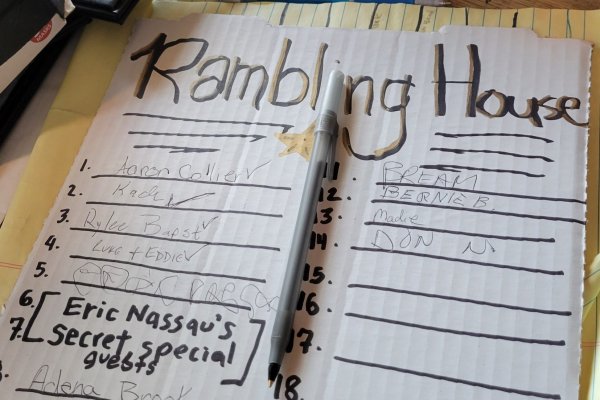 Rambling House
1. Aaron Collier ✓
2. Kach ✓
3. Rylee Bapst ✓
4. LUKE + EDDIE ✓
5.
6. [Eric Nassau's
7. Secret special
guests]
Adena
11. BREAM
12. BERNIE B.
13. Madie
14. DON N.
15.
16.
17.
18.